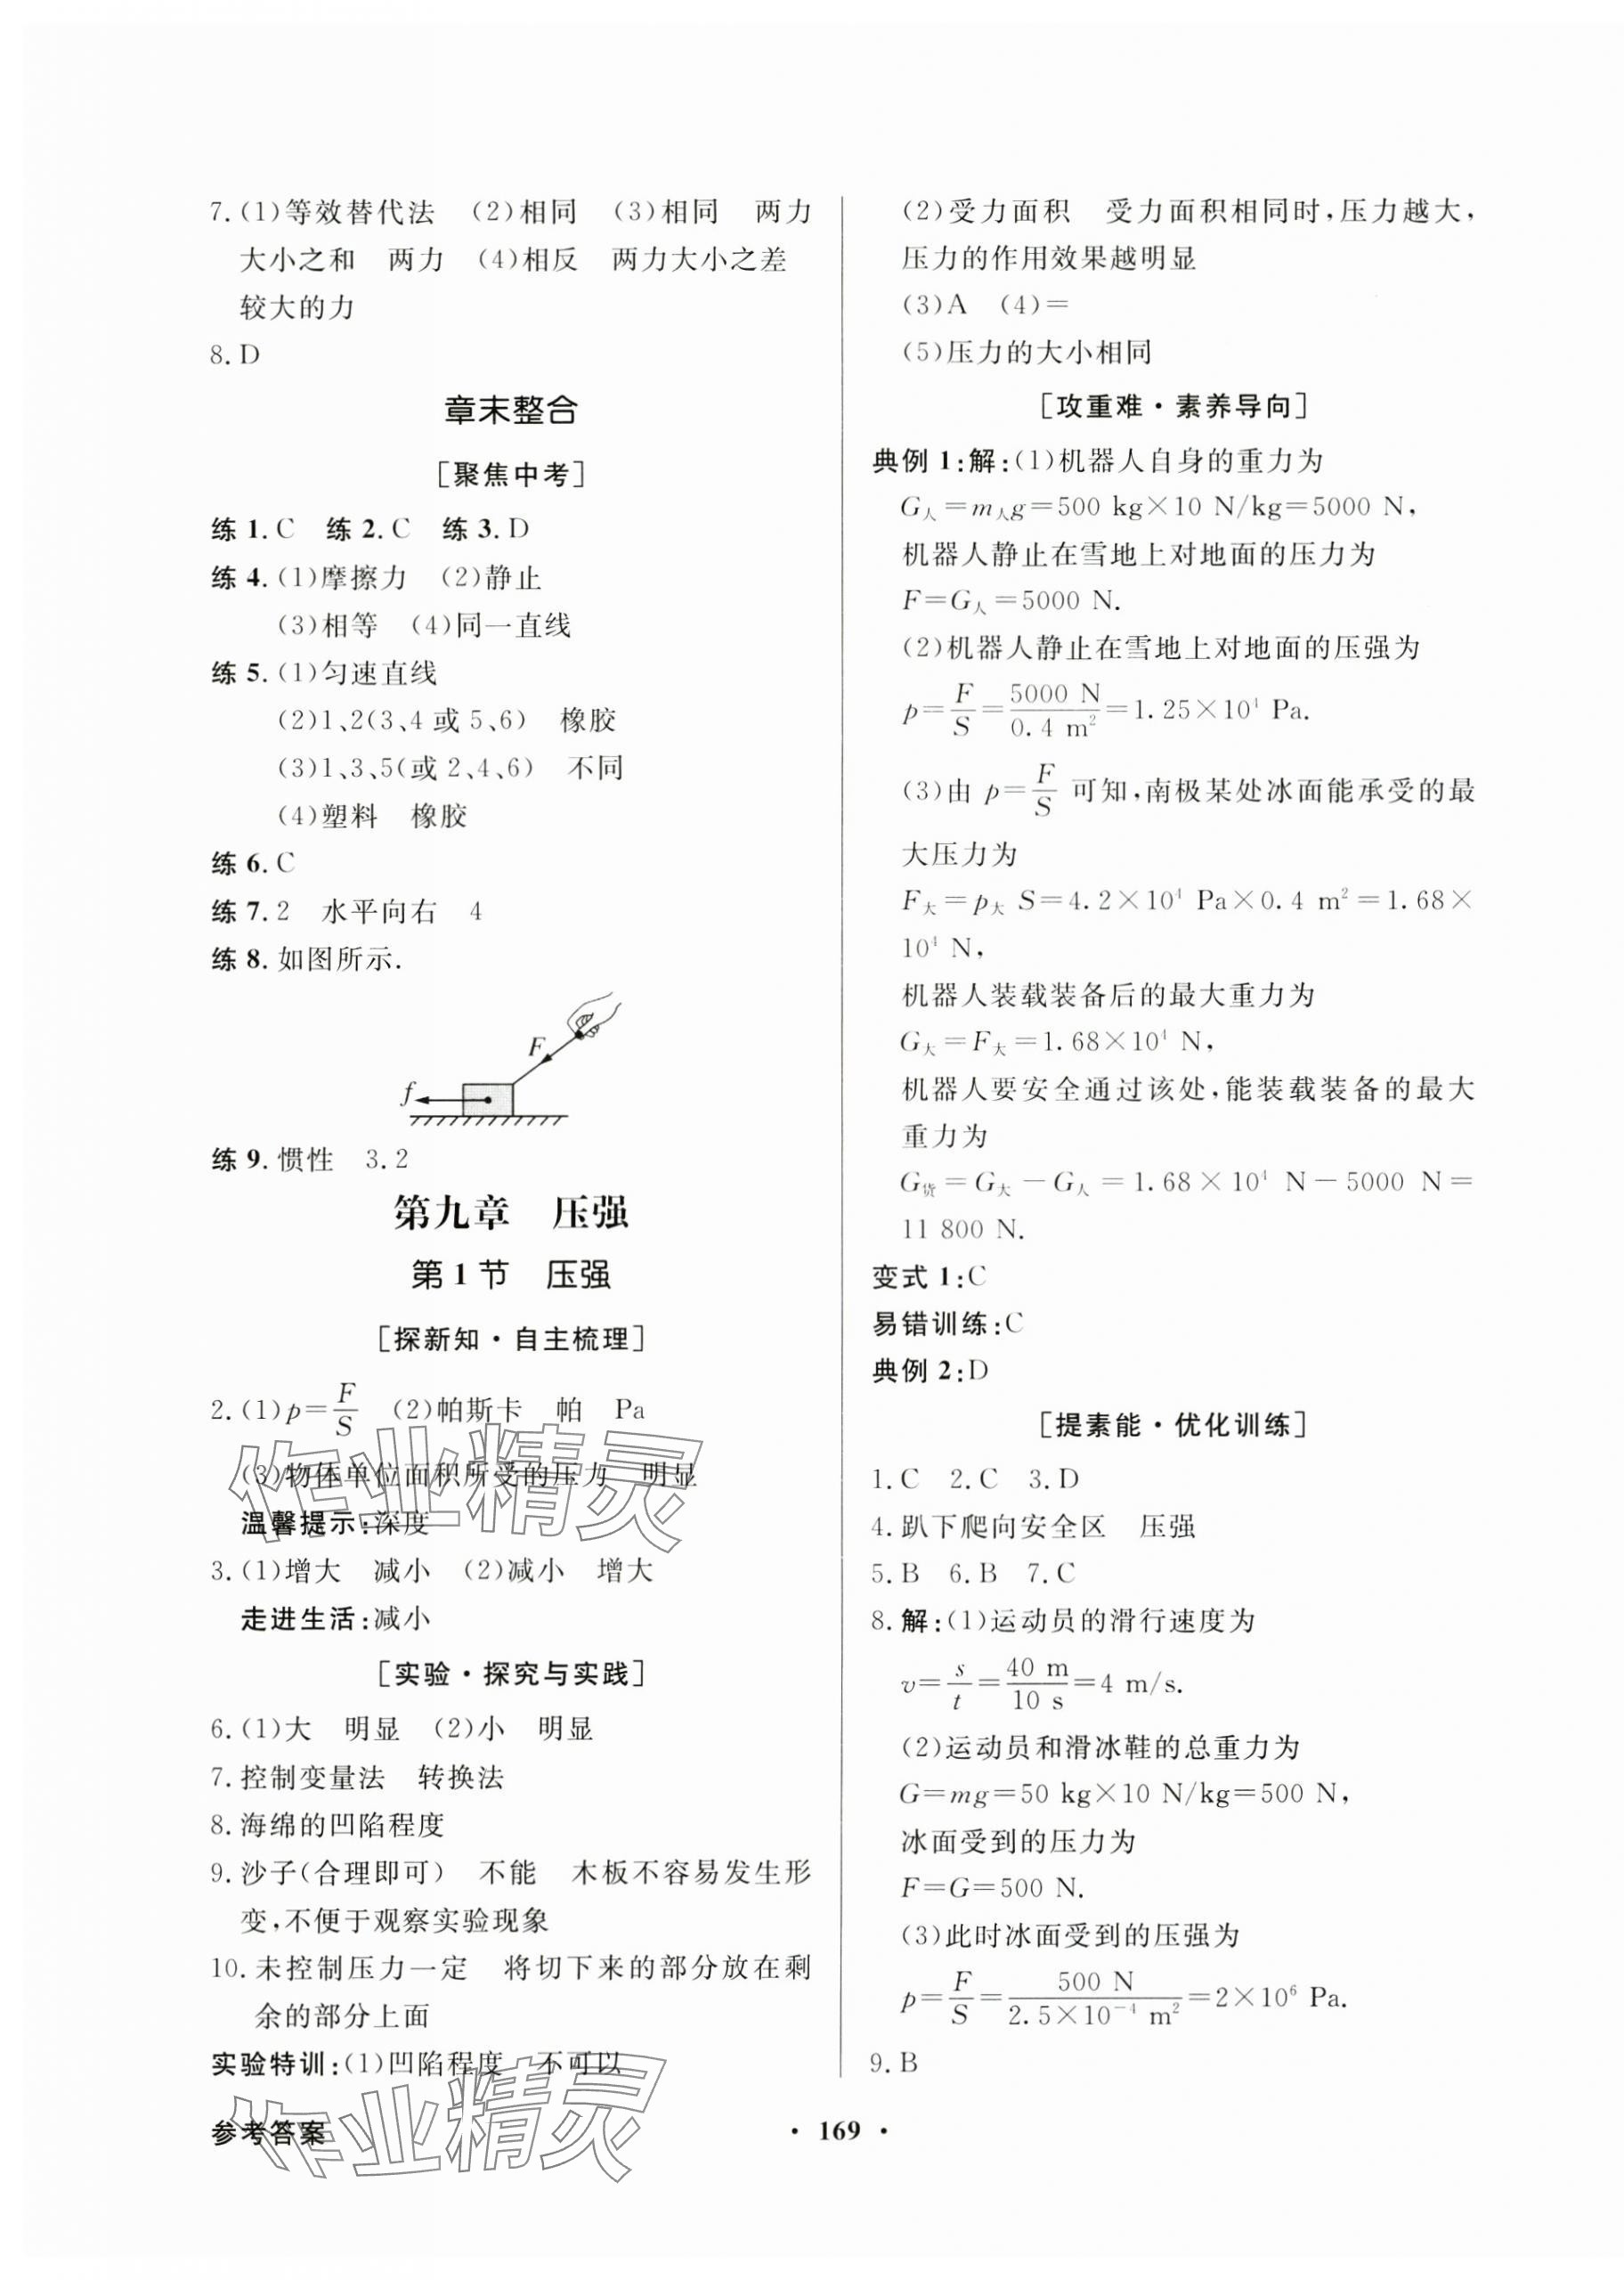 7.(1)等效替代法　(2)相同　(3)相同　两力
大小之和　两力　(4)相反　两力大小之差
较大的力
8.D
章末整合
[聚焦中考]
练 1.C　练 2.C　练 3.D
练 4.(1)摩擦力　(2)静止
(3)相等　(4)同一直线
练 5.(1)匀速直线
(2)1、2(3、4 或 5、6)　橡胶
(3)1、3、5(或 2、4、6)　不同
(4)塑料　橡胶
练 6.C
练 7.2　水平向右　4
练 8.如图所示.
F
f
练 9.惯性　3.2
第九章　压强
第 1 节　压强
[探新知·自主梳理]
2.(1)p=F/S　(2)帕斯卡　帕　Pa
(3)物体单位面积所受的压力　明显
温馨提示:深度
3.(1)增大　减小　(2)减小　增大
走进生活:减小
[实验·探究与实践]
6.(1)大　明显　(2)小　明显
7.控制变量法　转换法
8.海绵的凹陷程度
9.沙子(合理即可)　不能　木板不容易发生形
变,不便于观察实验现象
10.未控制压力一定　将切下来的部分放在剩
余的部分上面
实验特训:(1)凹陷程度　不可以
(2)受力面积　受力面积相同时,压力越大,
压力的作用效果越明显
(3)A　(4)=
(5)压力的大小相同
[攻重难·素养导向]
典例 1:解:(1)机器人自身的重力为
G人=m人g=500 kg×10 N/kg=5000 N,
机器人静止在雪地上对地面的压力为
F=G人=5000 N.
(2)机器人静止在雪地上对地面的压强为
p=F/S=5000 N/0.4 m²=1.25×10⁴ Pa.
(3)由 p=F/S 可知,南极某处冰面能承受的最
大压力为
F大=p大 S=4.2×10⁴ Pa×0.4 m²=1.68×
10⁴ N,
机器人装载装备后的最大重力为
G大=F大=1.68×10⁴ N,
机器人要安全通过该处,能装载装备的最大
重力为
G货=G大-G人=1.68×10⁴ N-5000 N=
11 800 N.
变式 1:C
易错训练:C
典例 2:D
[提素能·优化训练]
1.C　2.C　3.D
4.趴下爬向安全区　压强
5.B　6.B　7.C
8.解:(1)运动员的滑行速度为
v=s/t=40 m/10 s=4 m/s.
(2)运动员和滑冰鞋的总重力为
G=mg=50 kg×10 N/kg=500 N,
冰面受到的压力为
F=G=500 N.
(3)此时冰面受到的压强为
p=F/S=500 N/2.5×10⁻⁴ m²=2×10⁶ Pa.
9.B
参考答案
·169·
作业精灵
作业精灵